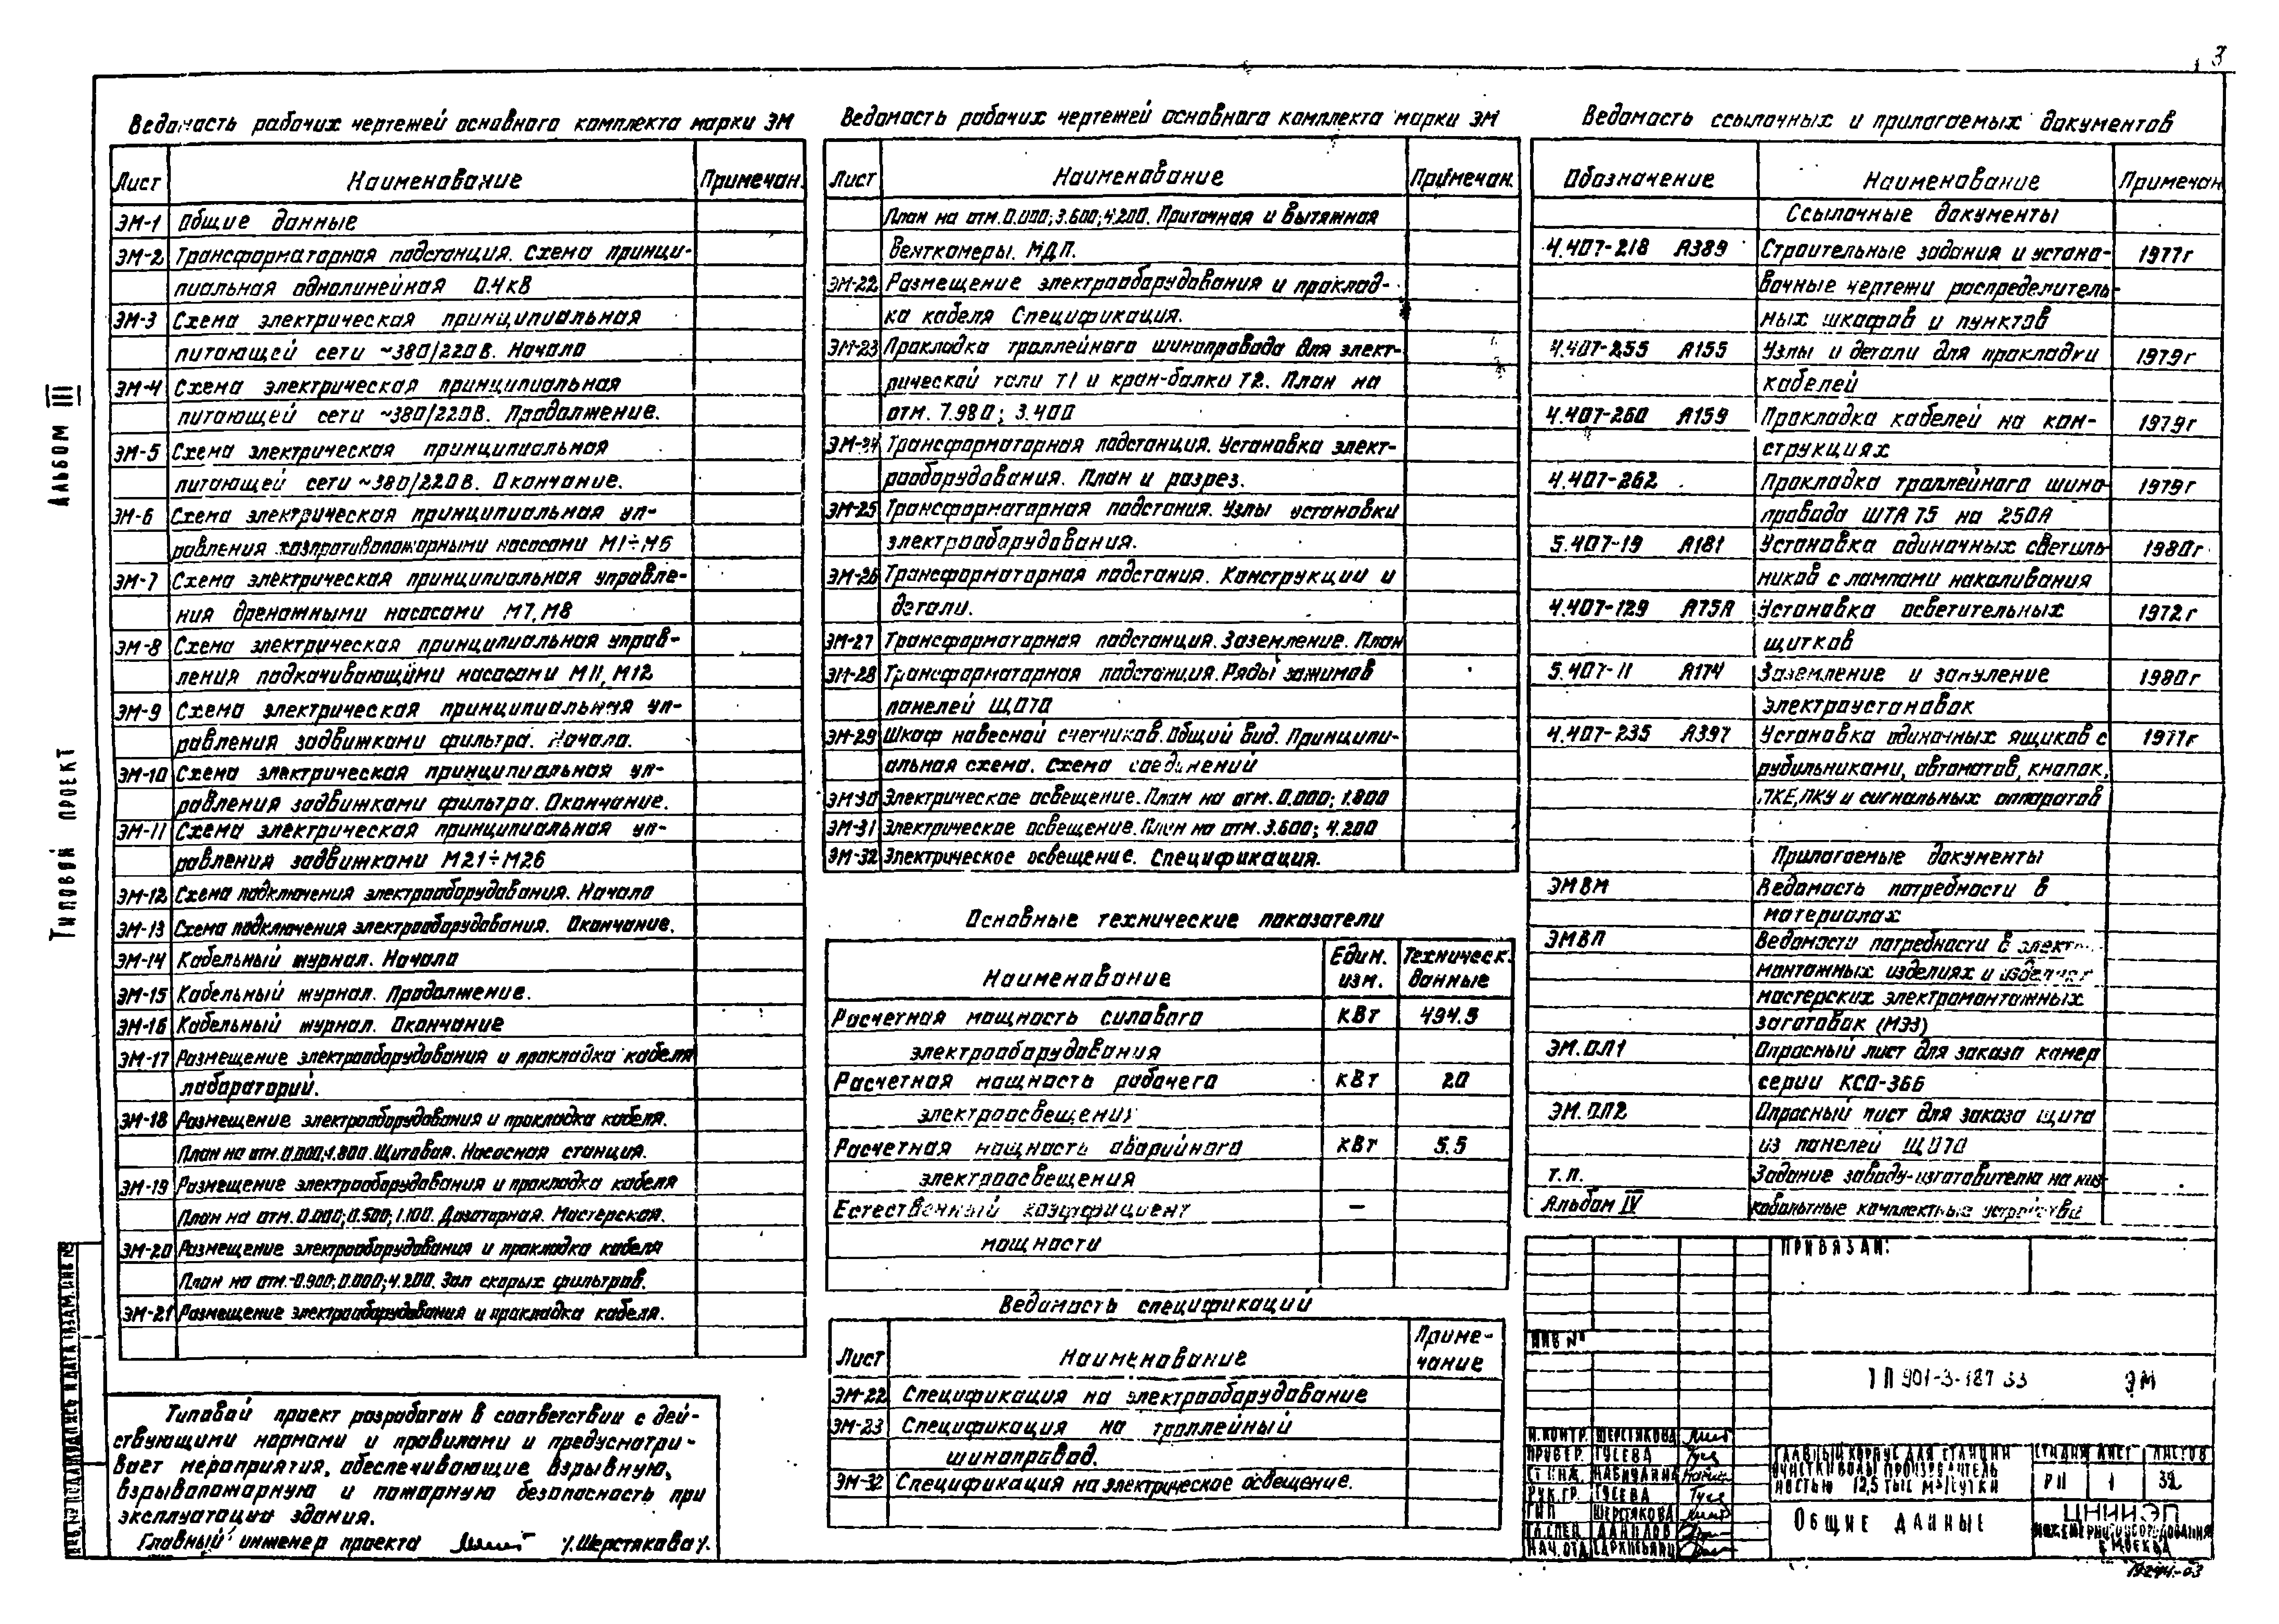 3
Альбом III
Типовой проект
Ведомость рабочих чертежей основного комплекта марки ЭМ
Лист Наименование Примечан.
ЭМ-1 Общие данные
ЭМ-2 Трансформаторная подстанция. Схема принци-
пиальная однолинейная 0.4кВ
ЭМ-3 Схема электрическая принципиальная
питающей сети ~380/220В. Начало
ЭМ-4 Схема электрическая принципиальная
питающей сети ~380/220В. Продолжение.
ЭМ-5 Схема электрическая принципиальная
питающей сети ~380/220В. Окончание.
ЭМ-6 Схема электрическая принципиальная уп-
равления хозпротивопожарными насосами М1÷М6
ЭМ-7 Схема электрическая принципиальная управле-
ния дренажными насосами М7, М8
ЭМ-8 Схема электрическая принципиальная управ-
ления подкачивающими насосами М11, М12
ЭМ-9 Схема электрическая принципиальная уп-
равления задвижками фильтра. Начало.
ЭМ-10 Схема электрическая принципиальная уп-
равления задвижками фильтра. Окончание.
ЭМ-11 Схема электрическая принципиальная уп-
равления задвижками М21÷М26
ЭМ-12 Схема подключения электрооборудования. Начало
ЭМ-13 Схема подключения электрооборудования. Окончание.
ЭМ-14 Кабельный журнал. Начало
ЭМ-15 Кабельный журнал. Продолжение.
ЭМ-16 Кабельный журнал. Окончание
ЭМ-17 Размещение электрооборудования и прокладка кабеля
лабораторий.
ЭМ-18 Размещение электрооборудования и прокладка кабеля.
План на отм. 0.000; 1.800. Щитовая. Насосная станция.
ЭМ-19 Размещение электрооборудования и прокладка кабеля
План на отм. 0.000; 0.500; 1.100. Дозаторная. Мастерская.
ЭМ-20 Размещение электрооборудования и прокладка кабеля
План на отм. -0.900; 0.000; 4.200. Зал скорых фильтров.
ЭМ-21 Размещение электрооборудования и прокладка кабеля.
Типовой проект разработан в соответствии с дей-
ствующими нормами и правилами и предусматри-
вает мероприятия, обеспечивающие взрывную,
взрывопожарную и пожарную безопасность при
эксплуатации здания.
Главный инженер проекта /Шерстякова/.
Ведомость рабочих чертежей основного комплекта марки ЭМ
Лист Наименование Примечан.
План на отм. 0.000; 3.600; 4.200. Приточная и вытяжная
венткамеры. МДП.
ЭМ-22 Размещение электрооборудования и проклад-
ка кабеля Спецификация.
ЭМ-23 Прокладка троллейного шинопровода для элект-
рической тали Т1 и кран-балки Т2. План на
отм. 7.980; 3.400
ЭМ-24 Трансформаторная подстанция. Установка элект-
рооборудования. План и разрез.
ЭМ-25 Трансформаторная подстания. Узлы установки
электрооборудования.
ЭМ-26 Трансформаторная подстания. Конструкции и
детали.
ЭМ-27 Трансформаторная подстанция. Заземление. План
ЭМ-28 Трансформаторная подстанция. Ряды зажимов
панелей ЩО70
ЭМ-29 Шкаф навесной счетчиков. Общий вид. Принципи-
альная схема. Схема соединений
ЭМ30 Электрическое освещение. План на отм. 0.000; 1.800
ЭМ-31 Электрическое освещение. План на отм. 3.600; 4.200
ЭМ-32 Электрическое освещение. Спецификация.
Основные технические показатели
Наименование Един. изм. Техническ. данные
Расчетная мощность силового кВт 494.5
электрооборудования
Расчетная мощность рабочего кВт 20
электроосвещения
Расчетная мощность аварийного кВт 5.5
электроосвещения
Естественный коэффициент —
мощности
Ведомость спецификаций
Лист Наименование Приме-
чание
ЭМ-22 Спецификация на электрооборудование
ЭМ-23 Спецификация на троллейный
шинопровод.
ЭМ-32 Спецификация на электрическое освещение.
Ведомость ссылочных и прилагаемых документов
Обозначение Наименование Примечан
Ссылочные документы
4.407-218 А389 Строительные задания и устано- 1977г
вочные чертежи распределитель-
ных шкафов и пунктов
4.407-255 А155 Узлы и детали для прокладки 1979г
кабелей
4.407-260 А159 Прокладка кабелей на кон- 1979г
струкциях
4.407-262 Прокладка троллейного шино- 1979г
провода ШТА 75 на 250А
5.407-19 А181 Установка одиночных светиль- 1980г
ников с лампами накаливания
4.407-129 А75А Установка осветительных 1972г
щитков
5.407-11 А174 Заземление и зануление 1980г
электроустановок
4.407-235 А397 Установка одиночных ящиков с 1977г
рубильниками, автоматов, кнопок,
ПКЕ, ПКУ и сигнальных аппаратов
Прилагаемые документы
ЭМВМ Ведомость потребности в
материалах
ЭМВП Ведомости потребности в электро-
монтажных изделиях и изделиях
мастерских электромонтажных
заготовок (МЭЗ)
ЭМ.ОЛ1 Опросный лист для заказа камер
серии КСО-366
ЭМ.ОЛ2 Опросный лист для заказа щита
из панелей ЩО70
Т.П. Задание заводу-изготовителю на низ-
Альбом IV ковольтные комплектные устройства
ПРИВЯЗАН:
ИНВ №
ТП 901-3-187 83 ЭМ
Н.КОНТР. ШЕРСТЯКОВА
ПРОВЕР. ГУСЕВА
СТ ИНЖ.
РУК.ГР. ГУСЕВА
ГИП ШЕРСТЯКОВА
ГЛ.СПЕЦ. ДАНИЛОВ
НАЧ.ОТД
ГЛАВНЫЙ КОРПУС ДЛЯ СТАНЦИИ
ОЧИСТКИ ВОДЫ ПРОИЗВОДИТЕЛЬ
НОСТЬЮ 12,5 ТЫС М³/СУТКИ
СТАДИЯ ЛИСТ ЛИСТОВ
РП 1 32
ОБЩИЕ ДАННЫЕ
ЦНИИЭП
ИНЖЕНЕРНОГО ОБОРУДОВАНИЯ
Г. МОСКВА
19244-03
ИНВ.№ ПОДЛ. ПОДПИСЬ И ДАТА ВЗАМ.ИНВ №